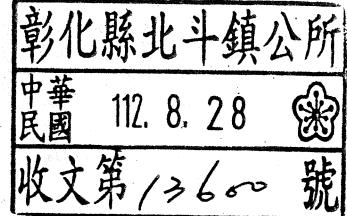 彰化縣北斗鎮公所
中華民國 112. 8. 28
收文第 13600 號